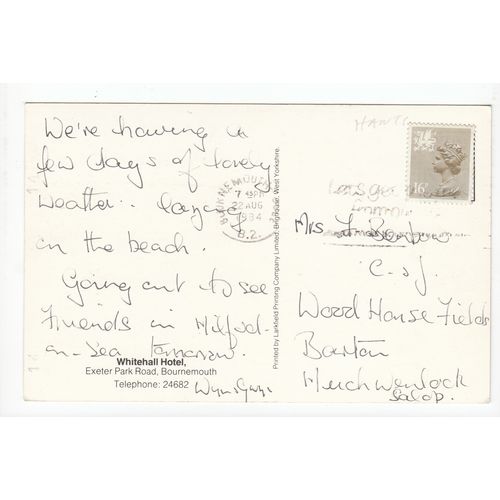 We're having a
few days of lovely
weather.. lazying
on the beach.
Going out to see
friends in Milford-
on-Sea tomorrow.
Whitehall Hotel,
Exeter Park Road, Bournemouth
Telephone: 24682
Printed by Larkfield Printing Company Limited, Brighouse, West Yorkshire.
BOURNEMOUTH
7 45PM
22 AUG
1984
B.2.
HANTS
16P
Mrs
C. & J.
Wood House Fields
Bourton
Much Wenlock
Salop.